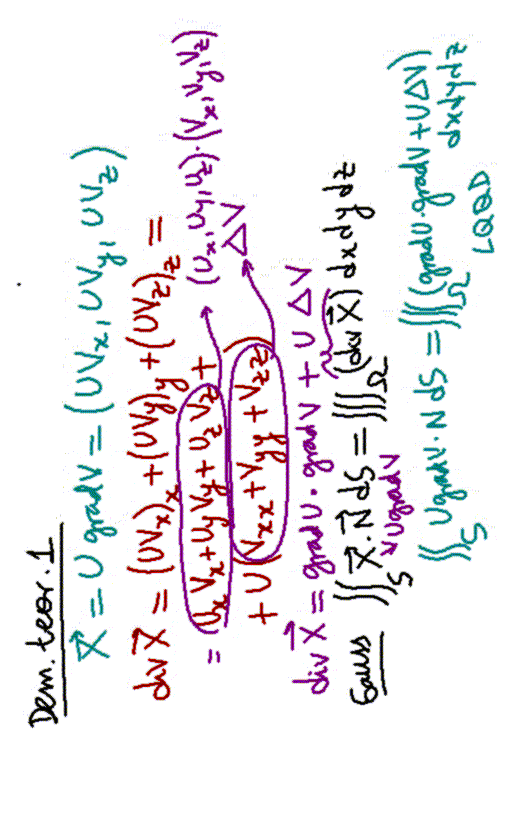 Dem. teor. 1
X⃗ = U grad V = (UVx, UVy, UVz)
div X⃗ = (UVx)x + (UVy)y + (UVz)z =
= Ux Vx + Uy Vy + Uz Vz + (Ux, Uy, Uz)·(Vx, Vy, Vz)
+ U(Vxx + Vyy + Vzz) ΔV
div X⃗ = grad U · grad V + U ΔV
Gauss ∬S X⃗·N⃗ dS = ∭Ω (div X⃗) dx dy dz
U grad V
∬S U grad V · N dS = ∭Ω (grad U · grad V + U ΔV)
dx dy dz
LQQD